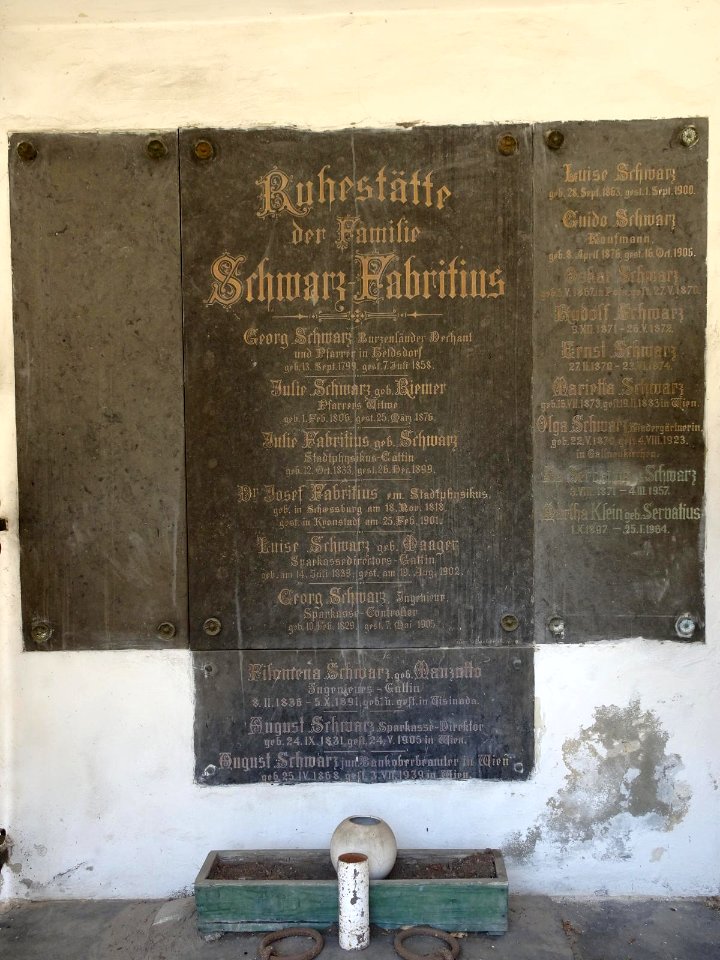 Ruhestätte
der Familie
Schwarz-Fabritius
Georg Schwarz Burzenländer Dechant
und Pfarrer in Heldsdorf
geb. 13. Sept. 1799, gest. 7. Juli 1858.
Julie Schwarz geb. Riemer
Pfarrers Witwe
geb. 1. Feb. 1806, gest. 25. März 1876.
Julie Fabritius geb. Schwarz
Stadtphysikus-Gattin
geb. 12. Oct. 1833, gest. 26. Dec. 1899.
Dr. Josef Fabritius em. Stadtphysikus.
geb. in Schæssburg am 18. Nov. 1818
gest. in Kronstadt am 25. Feb. 1901.
Luise Schwarz geb. Maager
Sparkassedirectors-Gattin
geb. am 14. Juli 1839, gest. am 19. Aug. 1902.
Georg Schwarz, Ingenieur,
Sparkasse-Controllor
geb. 10. Feb. 1829, gest. 7. Mai 1905.
Filomena Schwarz, geb. Manzutto
Ingenieurs-Gattin
8.II.1838 - 5.X.1891, geb. u. gest. in
August Schwarz Sparkasse-Direktor
geb. 24.IX.1831, gest. 24.V.1905 in Wien.
August Schwarz jun. Bankoberbeamter in Wien
geb. 25.IV.1868, gest. 3.VII.1939 in Wien.
Luise Schwarz
geb. 28. Sept. 1863, gest. 1. Sept. 1900.
Guido Schwarz
Kaufmann,
geb. 8. April 1876, gest. 16. Oct. 1905.
Oskar Schwarz
gest. 27.V.1870.
Rudolf Schwarz
9.XII.1871 - 26.V.1872.
Ernst Schwarz
27.II.1870 - 1874.
Marietta Schwarz
geb. 15.VII.1873, gest. 19.II.1883 in Wien,
Olga Schwarz Kindergärtnerin,
geb. 22.V.1870, gest. 4.VIII.1923.
in Gallneukirchen.
Schwarz
1871 - 4.III.1957.
Martha Klein geb. Servatius
1897 - 25.I.1964.